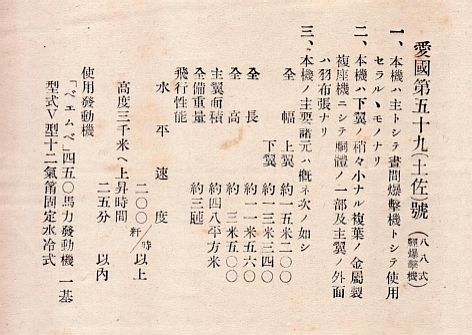 愛國第五十九(土佐)號 (八八式輕爆擊機)
一、本機ハ主トシテ晝間爆擊機トシテ使用
セラルヽモノナリ
二、本機ハ下翼ノ稍々小ナル複葉ノ金屬製
複座機ニシテ胴體ノ一部及主翼ノ外面
ハ羽布張ナリ
三、本機ノ主要諸元ハ槪ネ次ノ如シ
全幅 上翼 約一五米二〇〇
下翼 約一三米三四〇
全長 約一一米五六〇
全高 約三米五〇〇
主翼面積 約四八平方米
全備重量 約三瓲
飛行性能
水平速度 二〇〇粁/時以上
高度三千米ヘ上昇時間
二五分以內
使用發動機
「ベエムベ」四五〇馬力發動機 一基
型式V型十二氣筩固定水冷式